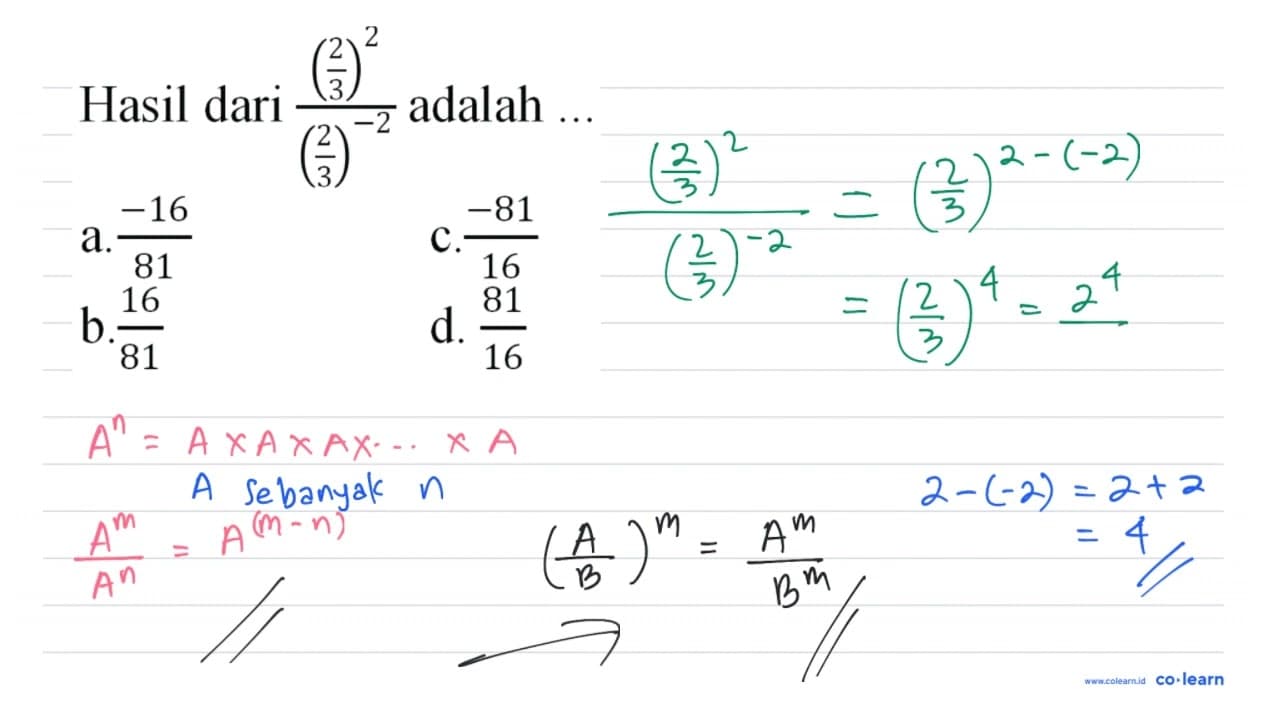 Hasil dari \frac{\left(\frac{2}{3}\right)^{2}}{\left(\frac{2}{3}\right)^{-2}} adalah ...
a. \frac{-16}{81}
c. \frac{-81}{16}
b. \frac{16}{81}
d. \frac{81}{16}
\frac{\left(\frac{2}{3}\right)^{2}}{\left(\frac{2}{3}\right)^{-2}} = \left(\frac{2}{3}\right)^{2-(-2)}
= \left(\frac{2}{3}\right)^{4} = \frac{2^{4}}{}
A^{n} = A × A × A × ... × A
A sebanyak n
\frac{A^{m}}{A^{n}} = A^{(m-n)}
\left(\frac{A}{B}\right)^{m} = \frac{A^{m}}{B^{m}}
2-(-2) = 2+2
= 4
www.colearn.id co·learn